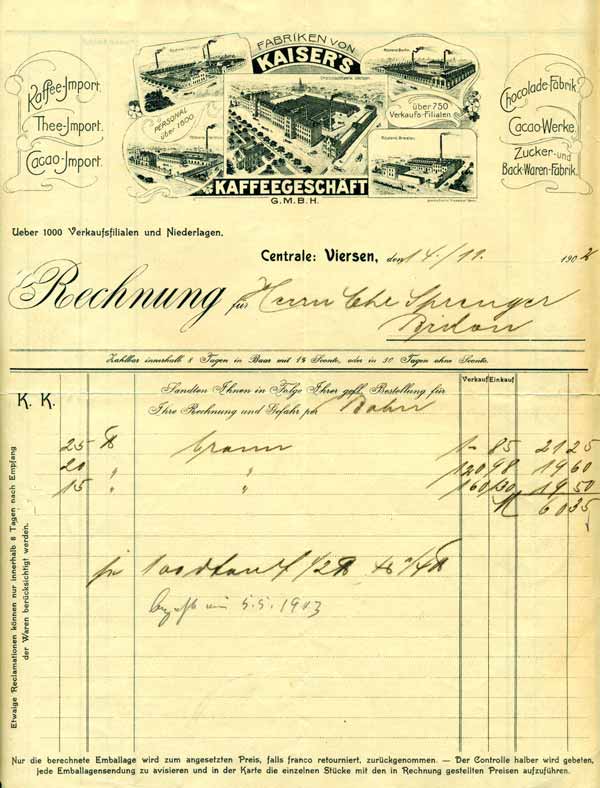 FABRIKEN VON
KAISER'S
KAFFEEGESCHÄFT
G.M.B.H.
Kaffee-Import.
Thee-Import.
Cacao-Import.
PERSONAL
über 1500
über 750
Verkaufs-Filialen
Chocolade-Fabrik
Cacao-Werke.
Zucker- und
Back-Waren-Fabrik.
Ueber 1000 Verkaufsfilialen und Niederlagen.
Centrale: Viersen, den 14./11. 1902
Rechnung für Herrn Che Sprenger
Zahlbar innerhalb 8 Tagen in Baar mit 1% Sconto, oder in 30 Tagen ohne Sconto.
Verkauf Einkauf
K. K.
Sandten Ihnen in Folge Ihrer gefl. Bestellung für
Ihre Rechnung und Gefahr per Bahn
25 ℔ 1- 85 21 25
20 " " 120 98 19 60
15 " " 160 130 19 50
M 60 35
1/2 ℔
5.5.1913
Etwaige Reclamationen können nur innerhalb 8 Tagen nach Empfang
der Waren berücksichtigt werden.
Nur die berechnete Emballage wird zum angesetzten Preis, falls franco retourniert, zurückgenommen. — Der Controlle halber wird gebeten,
jede Emballagensendung zu avisieren und in der Karte die einzelnen Stücke mit den in Rechnung gestellten Preisen aufzuführen.